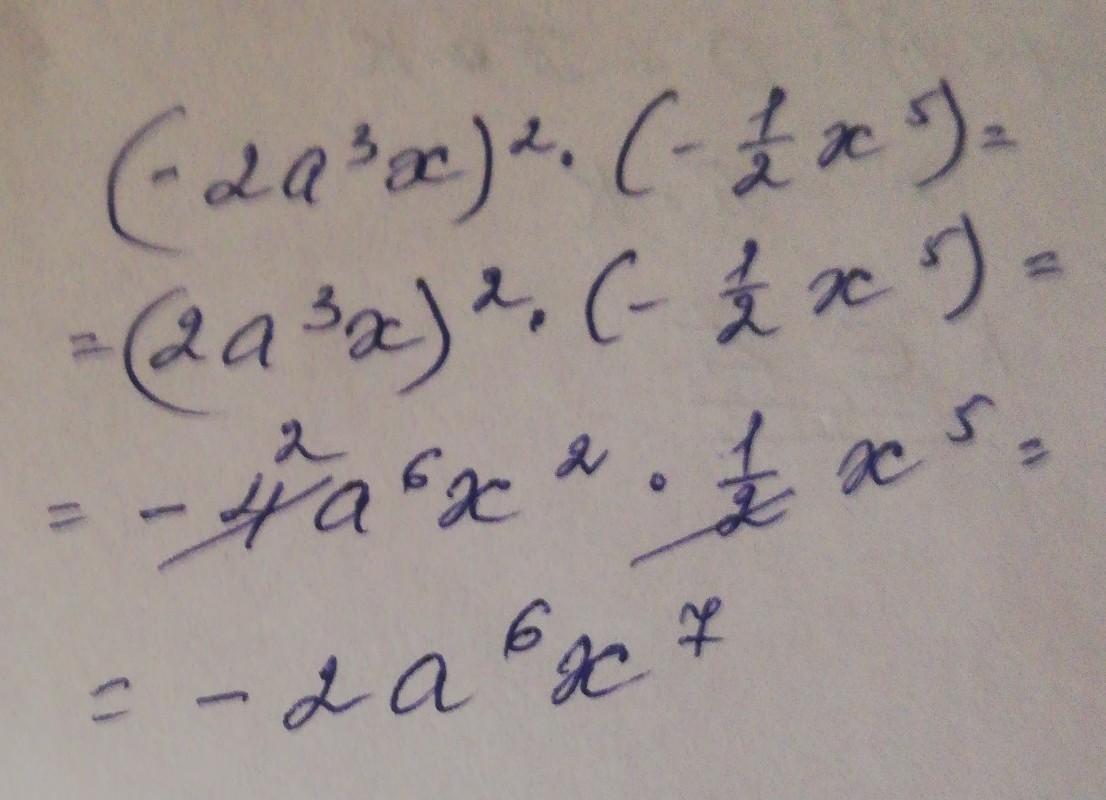 (-2a³x)²·(-½x⁵)=
=(2a³x)²·(-½x⁵)=
=-4²a⁶x²·½x⁵=
=-2a⁶x⁷